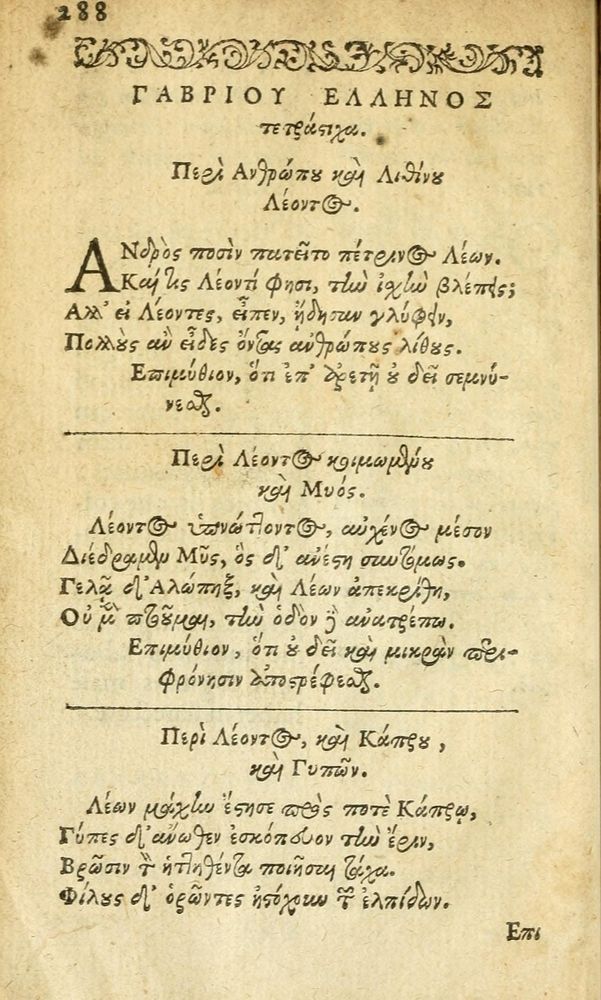 288
ΓΑΒΡΙΟΥ ΕΛΛΗΝΟΣ
τετράστιχα.
Περὶ Ανθρώπου καὶ Λιθίνου
Λέοντος.
ΑΝδρὸς ποσὶν πατεῖτο πέτρινος Λέων.
Καί τις Λέοντί φησι, τὴν ἰχὺν βλέπεις;
Αλλ' εἰ Λέοντες, εἶπεν, ᾔδησαν γλύφειν,
Πολλοὺς ἂν εἶδες ὄντας ἀνθρώπους λίθους.
Επιμύθιον, ὅτι ἐπ' ἀρετῇ οὐ δεῖ σεμνύ-
νεσθαι.
Περὶ Λέοντος κοιμωμένου
καὶ Μυός.
Λέοντος ὑπνώττοντος, αὐχένος μέσον
Διέδραμεν Μῦς, ὃς δ' ἀνέστη συντόμως.
Γελᾷ δ' Αλώπηξ, καὶ Λέων ἀπεκρίθη,
Οὐ μῦν πτοοῦμαι, τὴν ὁδὸν δὲ ἀνατρέπω.
Επιμύθιον, ὅτι οὐ δεῖ καὶ μικρὰν περι-
φρόνησιν ἀποστρέφεσθαι.
Περὶ Λέοντος, καὶ Κάπρου,
καὶ Γυπῶν.
Λέων μάχην ἔστησε πρός ποτὲ Κάπρῳ,
Γύπες δ' ἄνωθεν ἐσκόπευον τὴν ἔριν,
Βρῶσιν τὸν ἡττηθέντα ποιῆσαι τάχα.
Φίλους δ' ὁρῶντες ἠστόχουν τῶν ἐλπίδων.
Επι